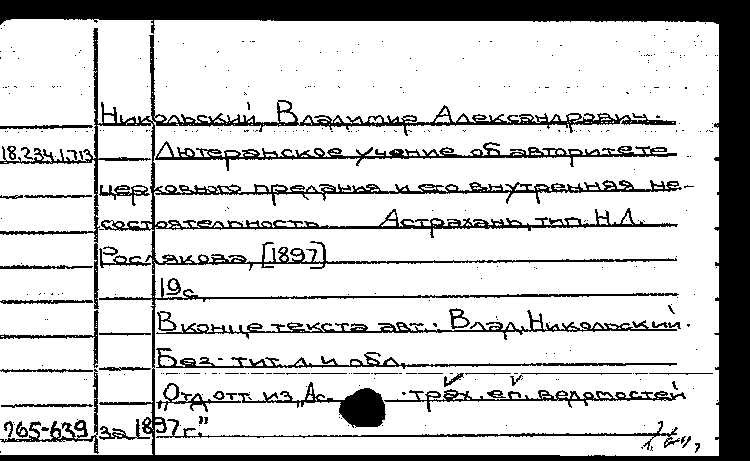 Никольский, Владимир Александрович.
18.234.1.713 Лютеранское учение об авторитете
церковного предания и его внутренняя не-
состоятельность. Астрахань, тип. Н.Л.
Рослякова, [1897]
19с.
В конце текста авт.: Влад. Никольский.
Без тит. л. и обл.
"Отд. отт. из "Ас. трах. еп. ведомостей
765-639 за 1897г."